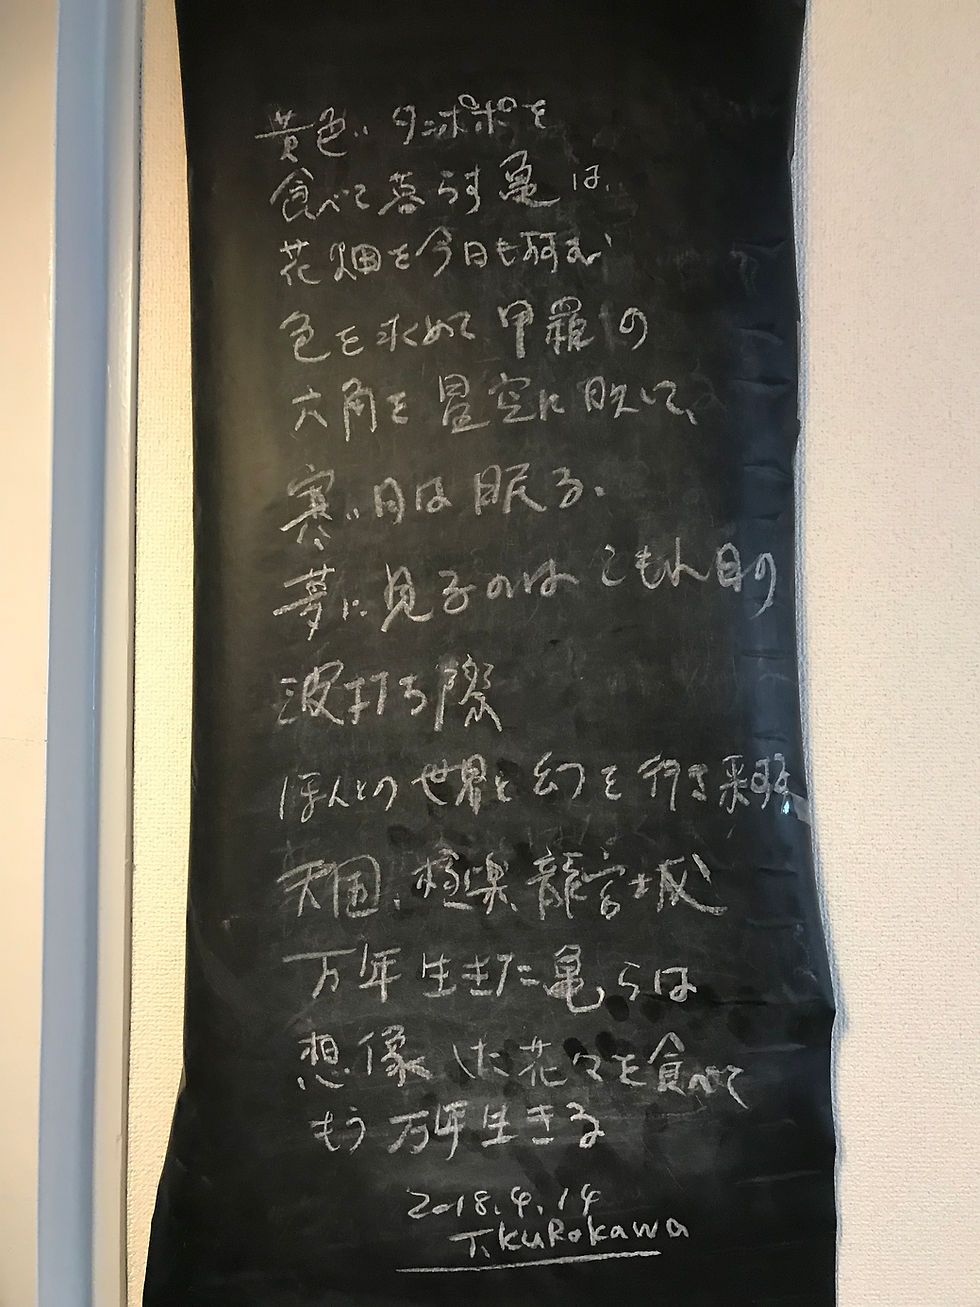 黄色いタンポポを
食べて暮らす亀は、
花畑を今日も
色を求めて甲羅の
六角を星空に映して、
寒い日は眠る.
夢に見るのはこもれ日の
波打ち際
ほんとの世界と幻を行き来
天国、極楽、龍宮城
万年生きた亀らは
想像した花々を食べて
もう万年生きる
2018.4.14
T.KUROKAWA